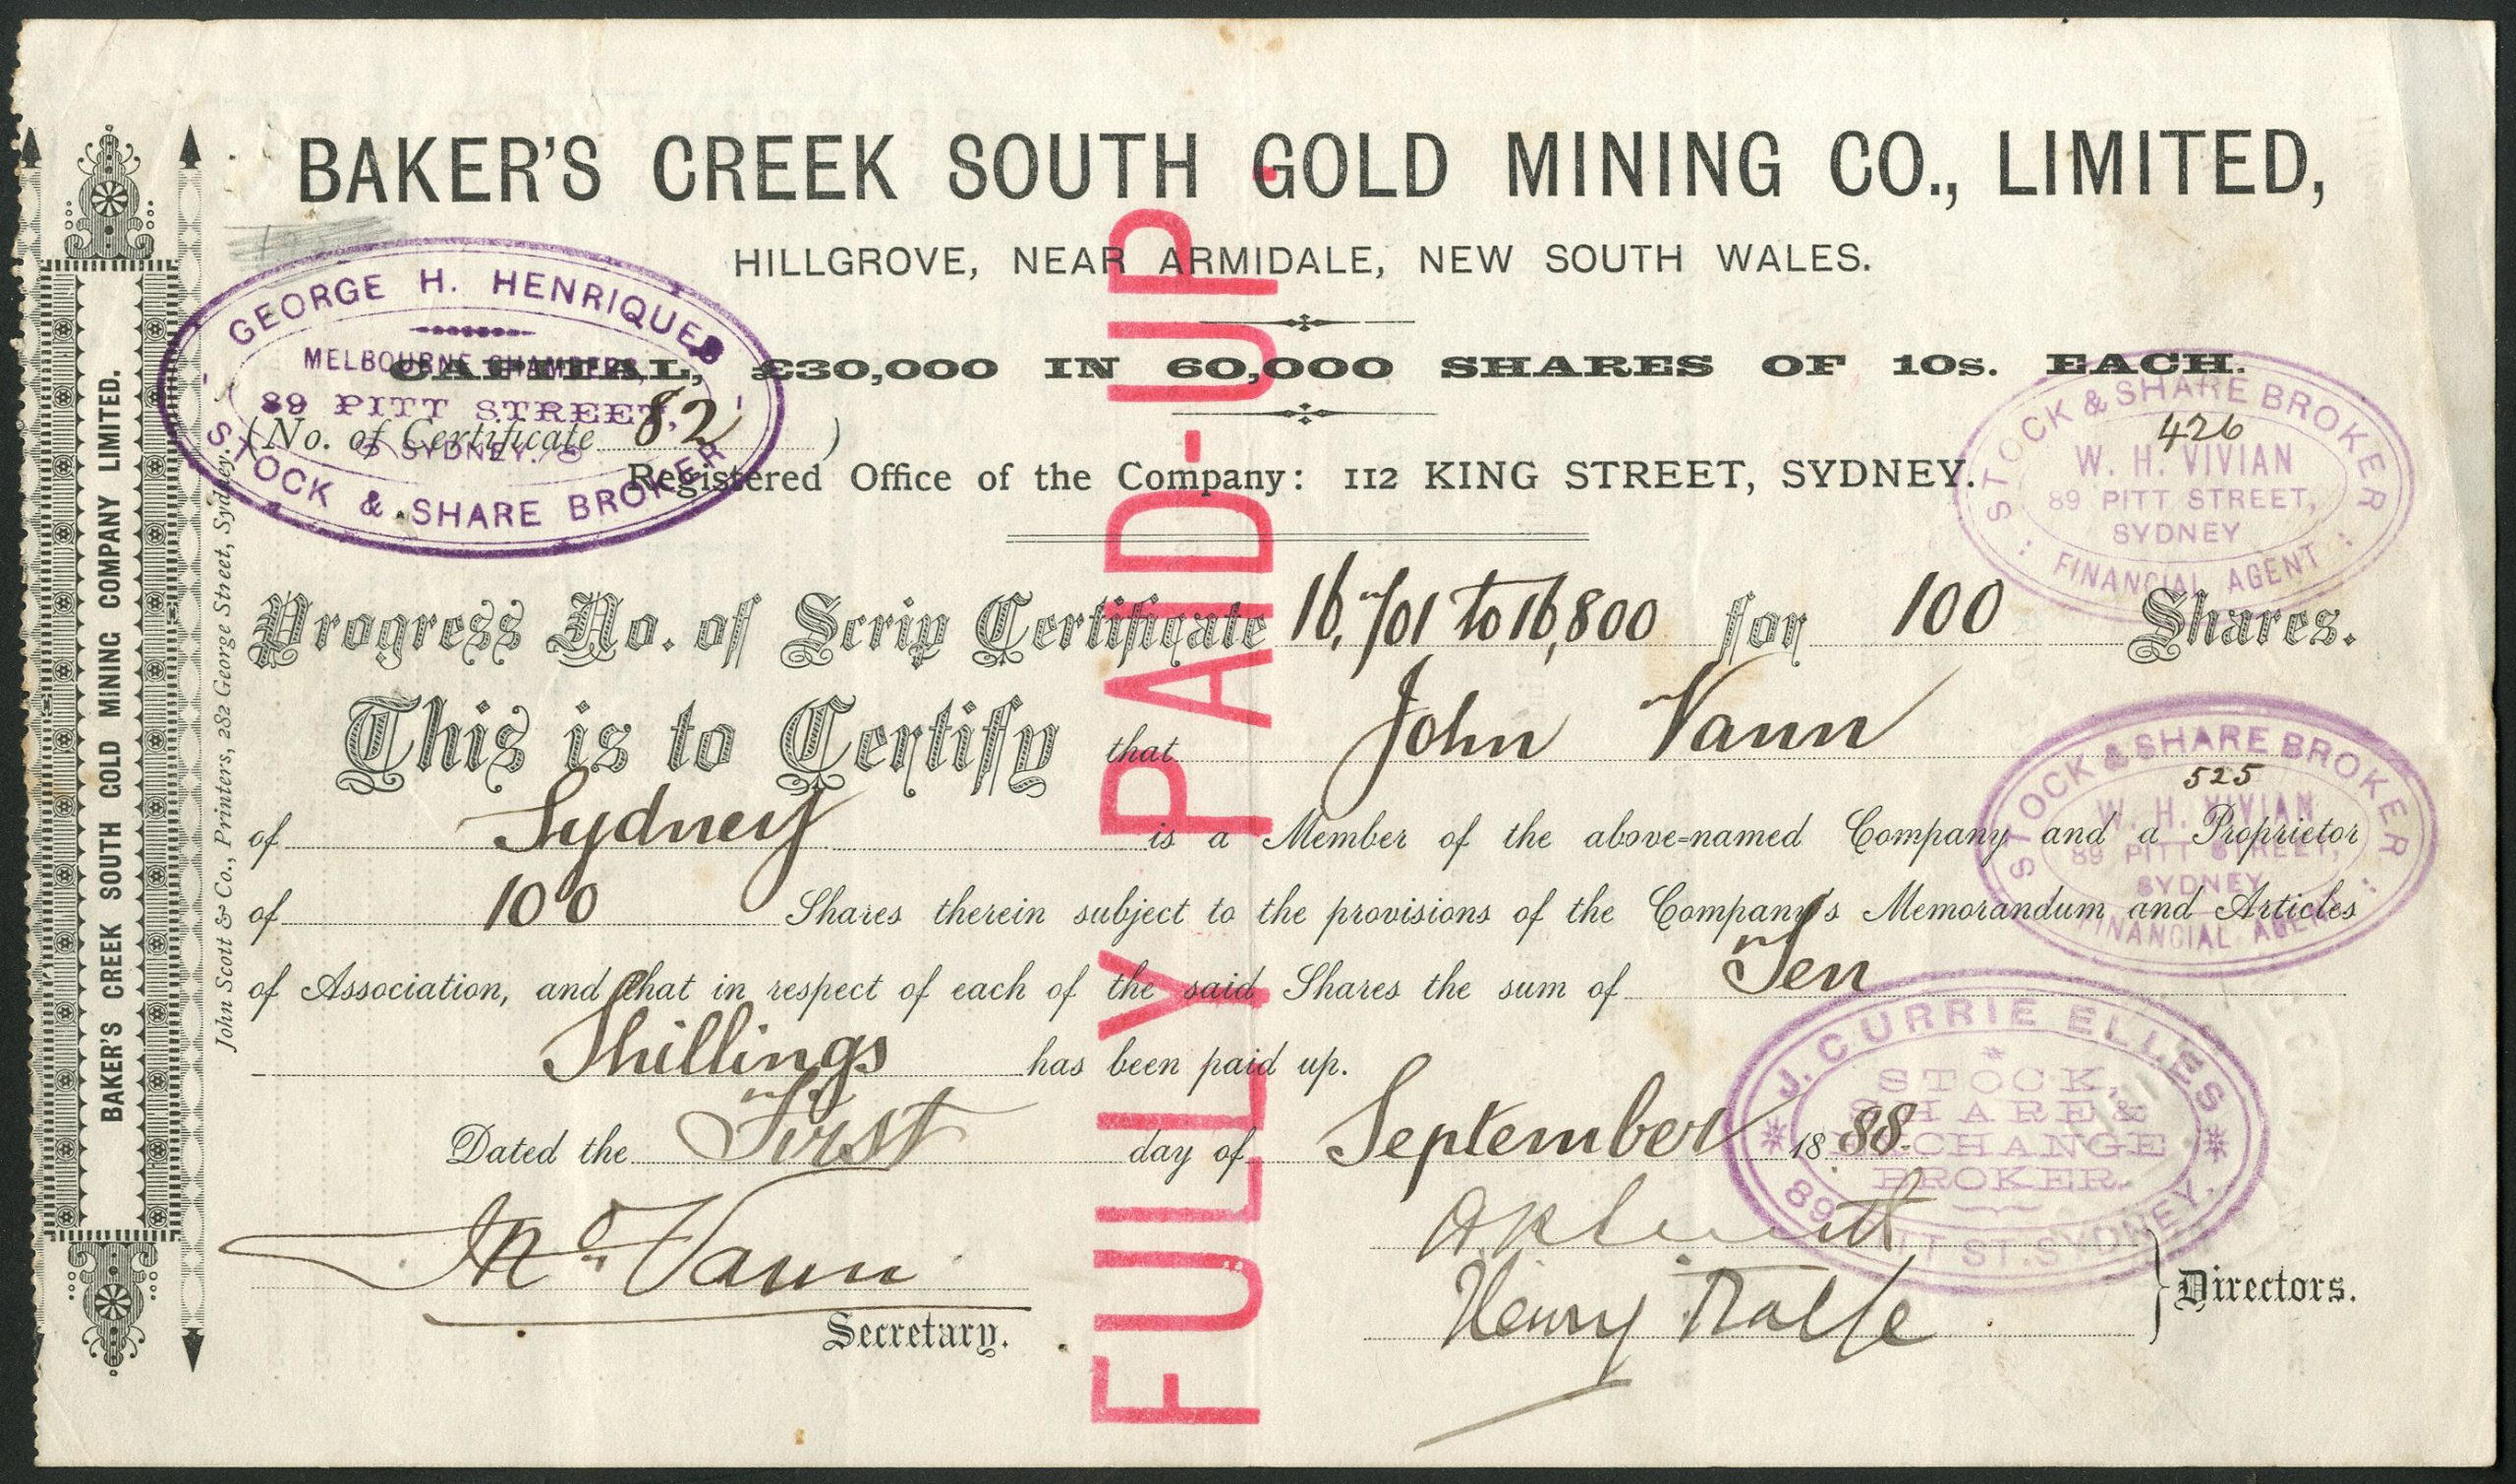 BAKER'S CREEK SOUTH GOLD MINING CO., LIMITED,
HILLGROVE, NEAR ARMIDALE, NEW SOUTH WALES.
CAPITAL, £30,000 IN 60,000 SHARES OF 10s. EACH.
(No. of Certificate 82)
Registered Office of the Company: 112 KING STREET, SYDNEY.
Progress No. of Scrip Certificate 16,701 to 16,800 for 100 Shares.
This is to Certify that John Vann
of Sydney is a Member of the above-named Company and a Proprietor
of 100 Shares therein subject to the provisions of the Company's Memorandum and Articles
of Association, and that in respect of each of the said Shares the sum of Ten
Shillings has been paid up.
Dated the First day of September 1888.
Jno. Vann
Secretary.
Henry Rolfe
Directors.
FULLY PAID-UP
BAKER'S CREEK SOUTH GOLD MINING COMPANY LIMITED.
John Scott & Co., Printers, 282 George Street, Sydney.
GEORGE H. HENRIQUES
MELBOURNE CHAMBERS,
89 PITT STREET,
SYDNEY.
STOCK & SHARE BROKER
STOCK & SHARE BROKER
426
W. H. VIVIAN
89 PITT STREET,
SYDNEY
FINANCIAL AGENT
STOCK & SHARE BROKER
525
W. H. VIVIAN
89 PITT STREET,
SYDNEY
FINANCIAL AGENT
J. CURRIE ELLES
STOCK,
SHARE &
EXCHANGE
BROKER.
89 PITT ST. SYDNEY.